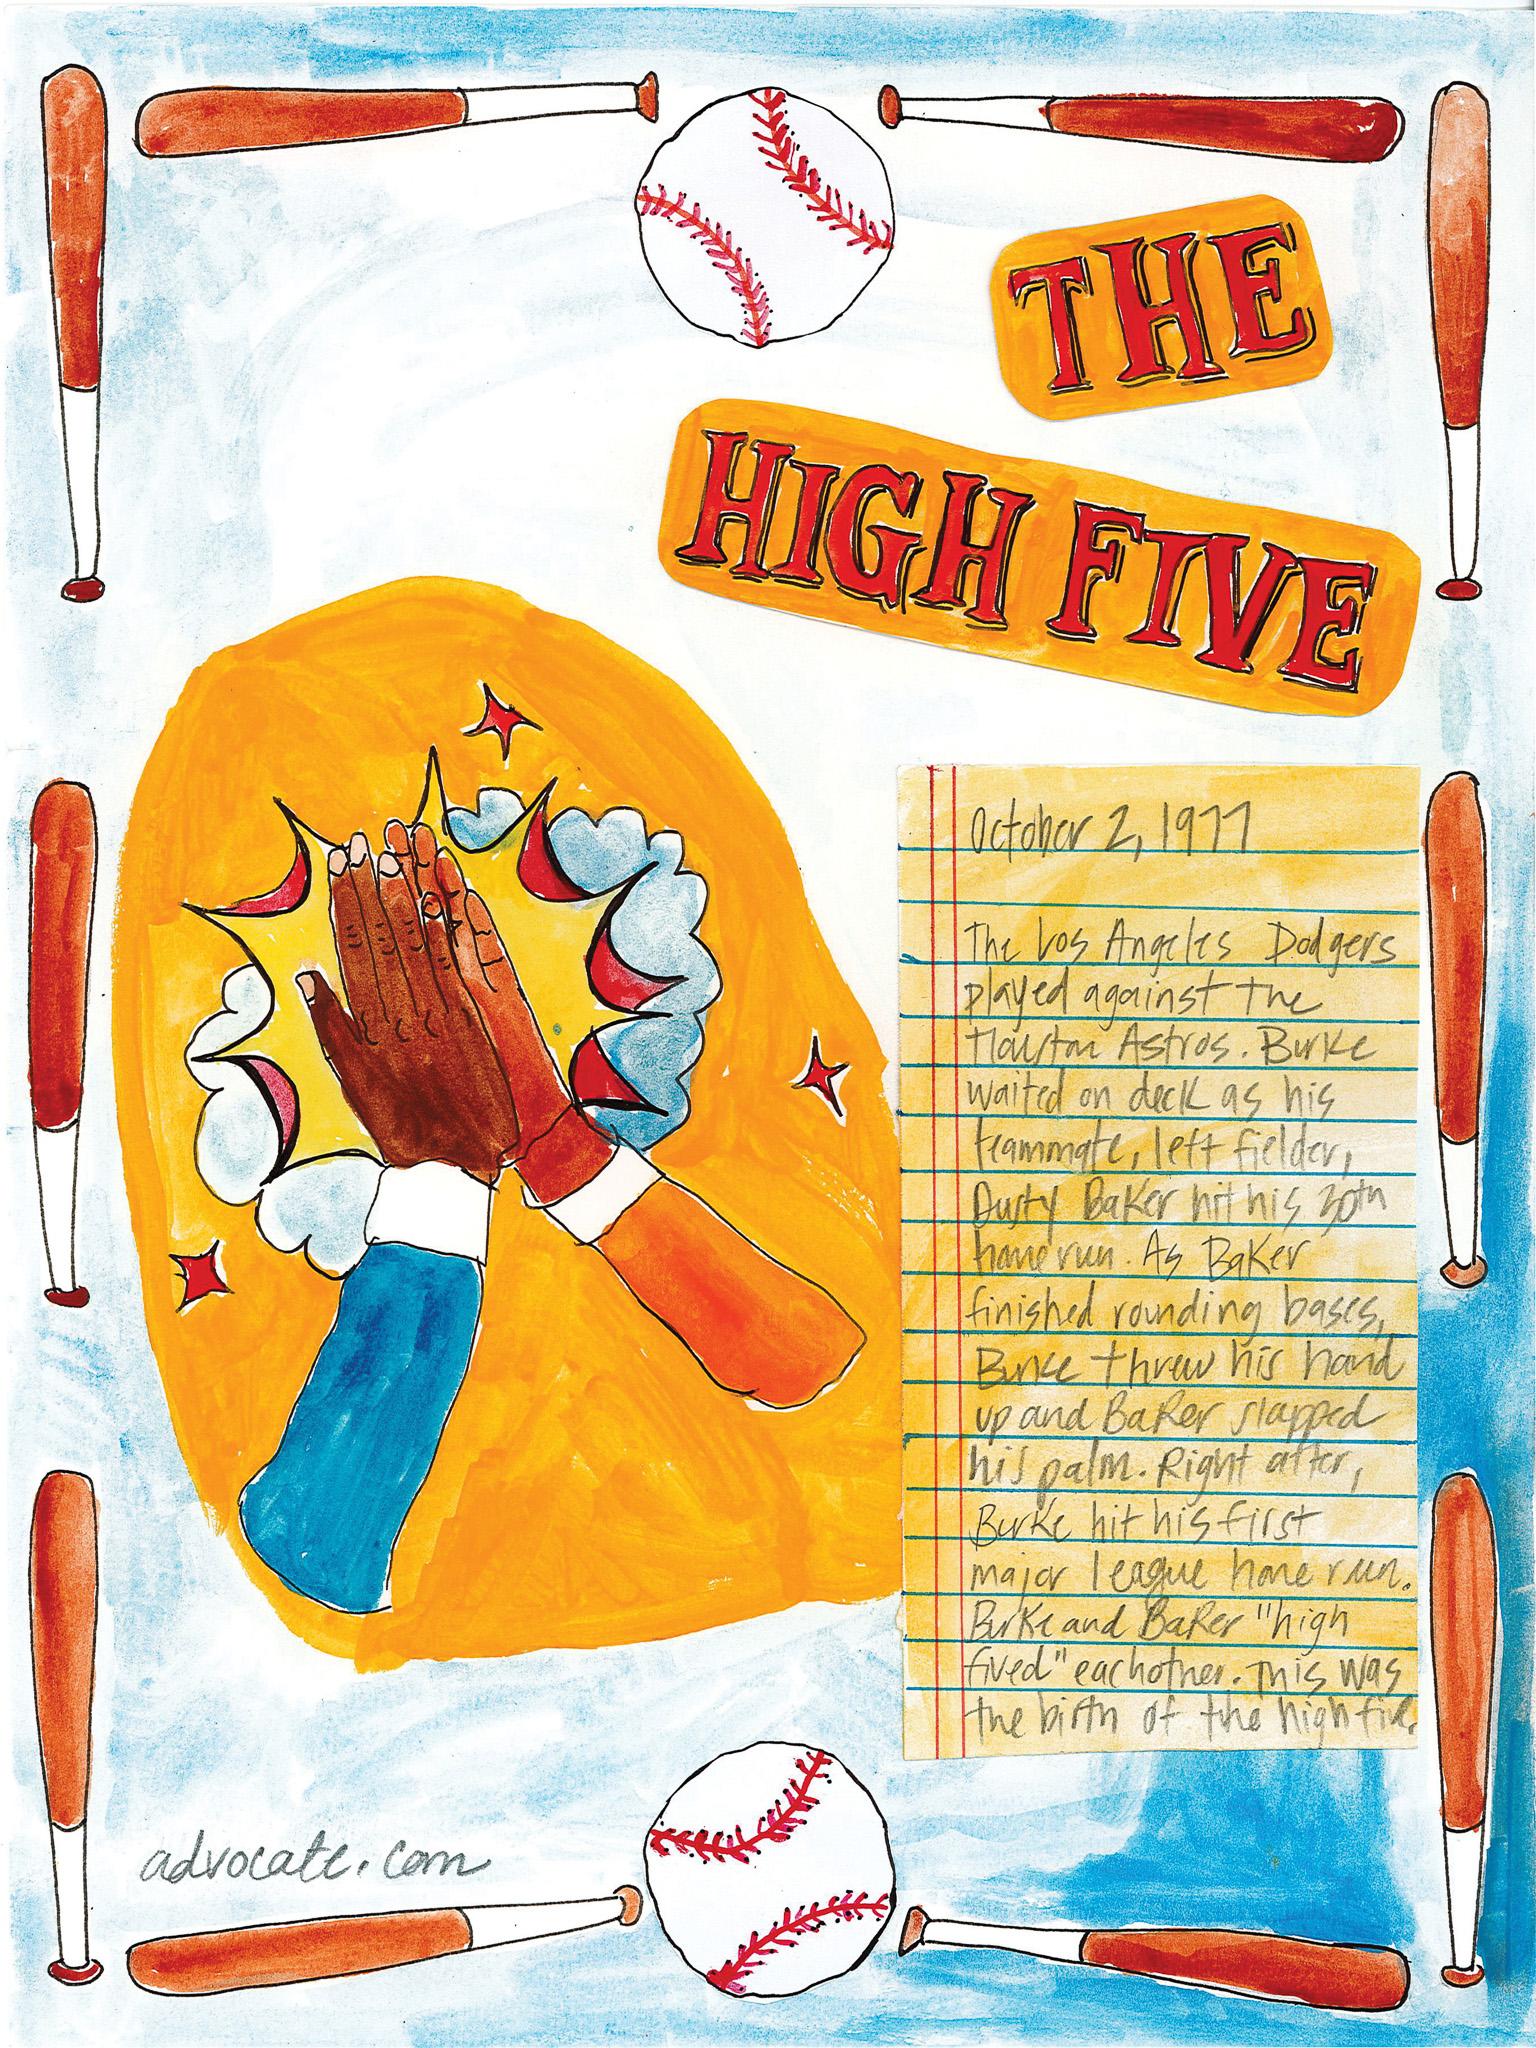 THE
HIGH FIVE
October 2, 1977
The Los Angeles Dodgers
played against the
Houston Astros. Burke
waited on deck as his
teammate, left fielder,
Dusty Baker hit his 30th
home run. As Baker
finished rounding bases,
Burke threw his hand
up and Baker slapped
his palm. Right after,
Burke hit his first
major league home run.
Burke and Baker "high
fived" eachother. This was
the birth of the high five.
advocate.com